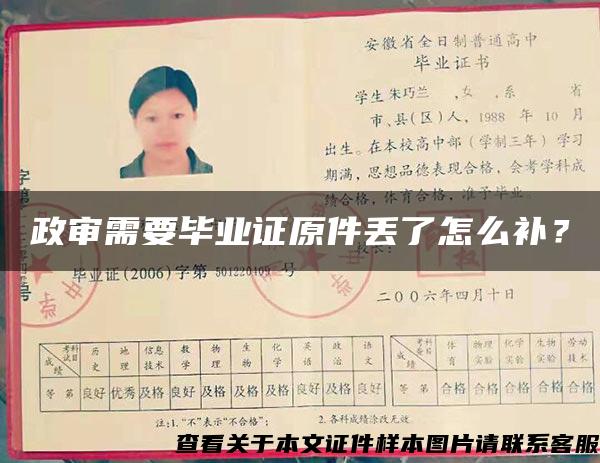 安徽省全日制普通高中
毕业证书
学生 朱巧兰 ,女 ,系 省
市、县(区)人, 1988 年 10 月
出生。在本校高中部(学制三年)学习
期满,思想品德表现合格,会考学科成
绩合格,体育合格,准予毕业。
政审需要毕业证原件丢了怎么补?
毕业证(2006)字第 501220409 号
二00六年四月十日
成绩 考试科目 历史 地理 信息技术 数学 物理 生物 化学 英语 政治 语文
等第 良好 优秀 及格 及格 及格 及格 及格 良好 及格 良好
成绩 考查科目 体育 物理实验 化学实验 生物实验 劳动技术
等第 合格 合格 合格 合格 合格
注:1."不"表示"不合格"; 2.各科成绩涂改无效
查看关于本文证件样本图片请联系客服